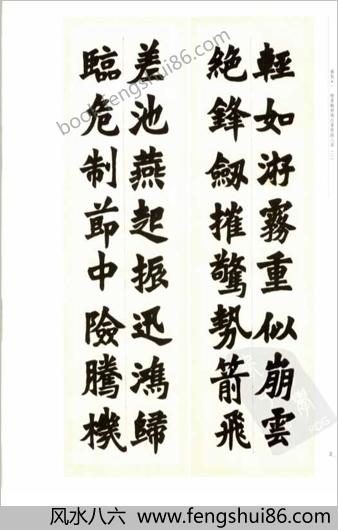 輕如游霧重似崩雲
絶鋒劔摧驚勢箭飛
差池燕起振迅鴻歸
臨危制節中險騰機
bookfengshui86.com
風水八六 www.fengshui86.com